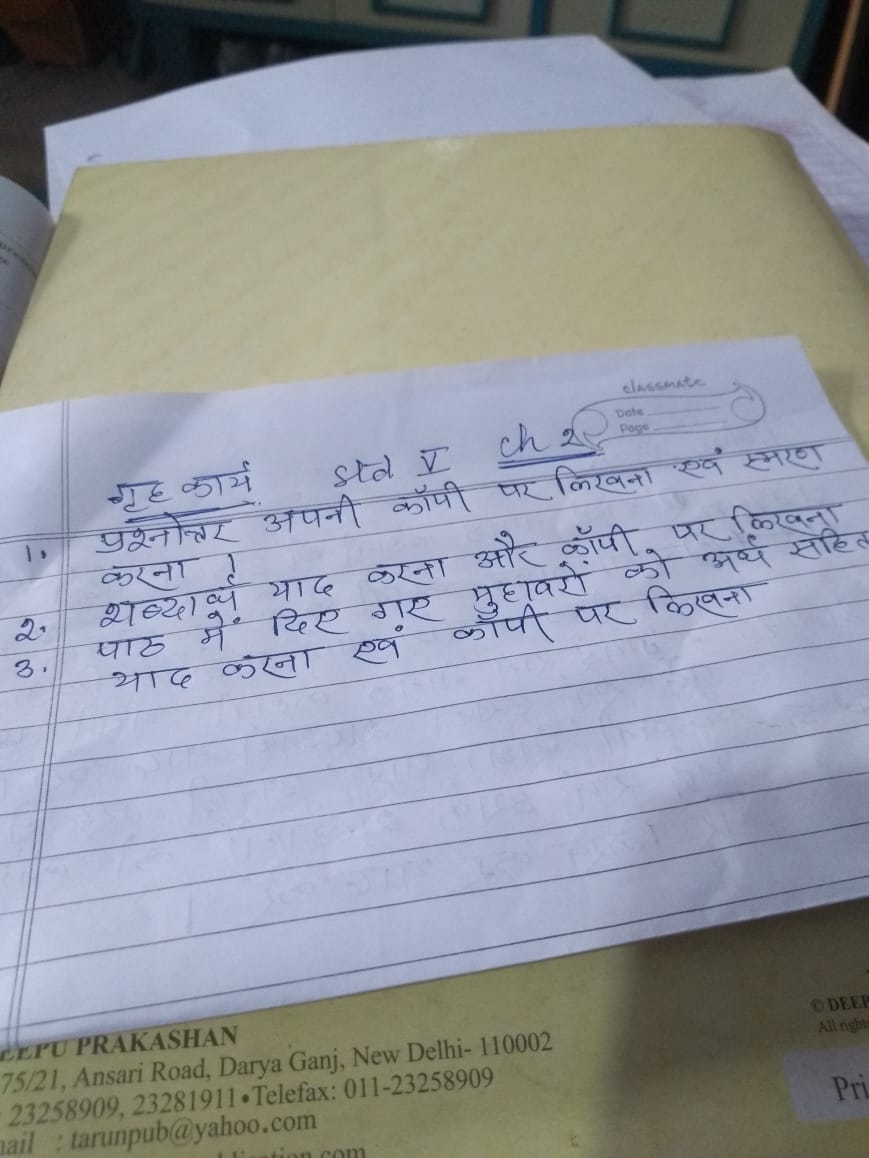 classmate
Date
Page
गृह कार्य std V ch 2
1. प्रश्नोत्तर अपनी कॉपी पर लिखना एवं स्मरण
करना ।
2. शब्दार्थ याद करना और कॉपी पर लिखना
3. पाठ में दिए गए मुहावरों को अर्थ सहित
याद करना एवं कॉपी पर लिखना
EEPU PRAKASHAN
75/21, Ansari Road, Darya Ganj, New Delhi- 110002
23258909, 23281911•Telefax: 011-23258909
nail : tarunpub@yahoo.com
© DEEP
All right
Pri